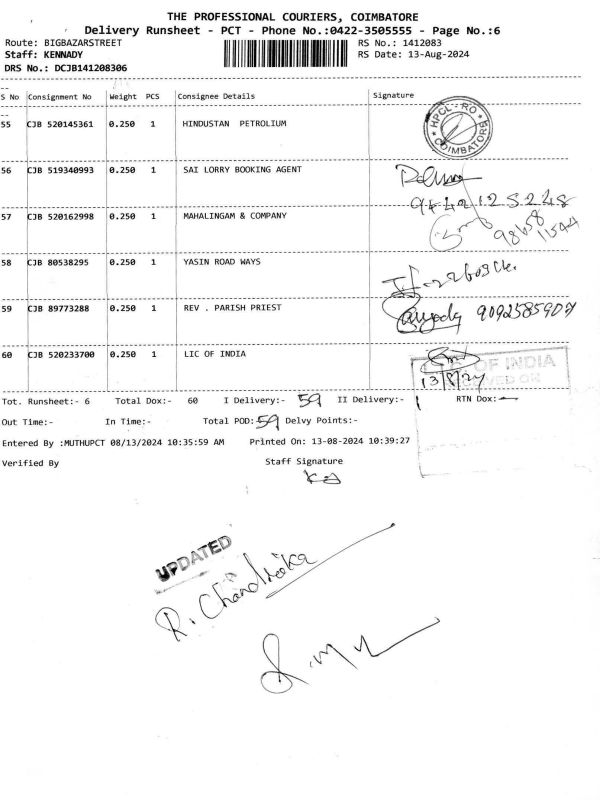 THE PROFESSIONAL COURIERS, COIMBATORE
Delivery Runsheet - PCT - Phone No.:0422-3505555 - Page No.:6
Route: BIGBAZARSTREET RS No.: 1412083
Staff: KENNADY RS Date: 13-Aug-2024
DRS No.: DCJB141208306
S No Consignment No Weight PCS Consignee Details Signature
55 CJB 520145361 0.250 1 HINDUSTAN PETROLIUM
HPCL-RO
COIMBATORE
56 CJB 519340993 0.250 1 SAI LORRY BOOKING AGENT
57 CJB 520162998 0.250 1 MAHALINGAM & COMPANY
58 CJB 80538295 0.250 1 YASIN ROAD WAYS
59 CJB 89773288 0.250 1 REV . PARISH PRIEST
9092585907
60 CJB 520233700 0.250 1 LIC OF INDIA
OF INDIA
13/8/24
Tot. Runsheet:- 6 Total Dox:- 60 I Delivery:- 59 II Delivery:- 1 RTN Dox:-
Out Time:- In Time:- Total POD:- 59 Delvy Points:-
Entered By :MUTHUPCT 08/13/2024 10:35:59 AM Printed On: 13-08-2024 10:39:27
Verified By Staff Signature
UPDATED
R. Chandrika